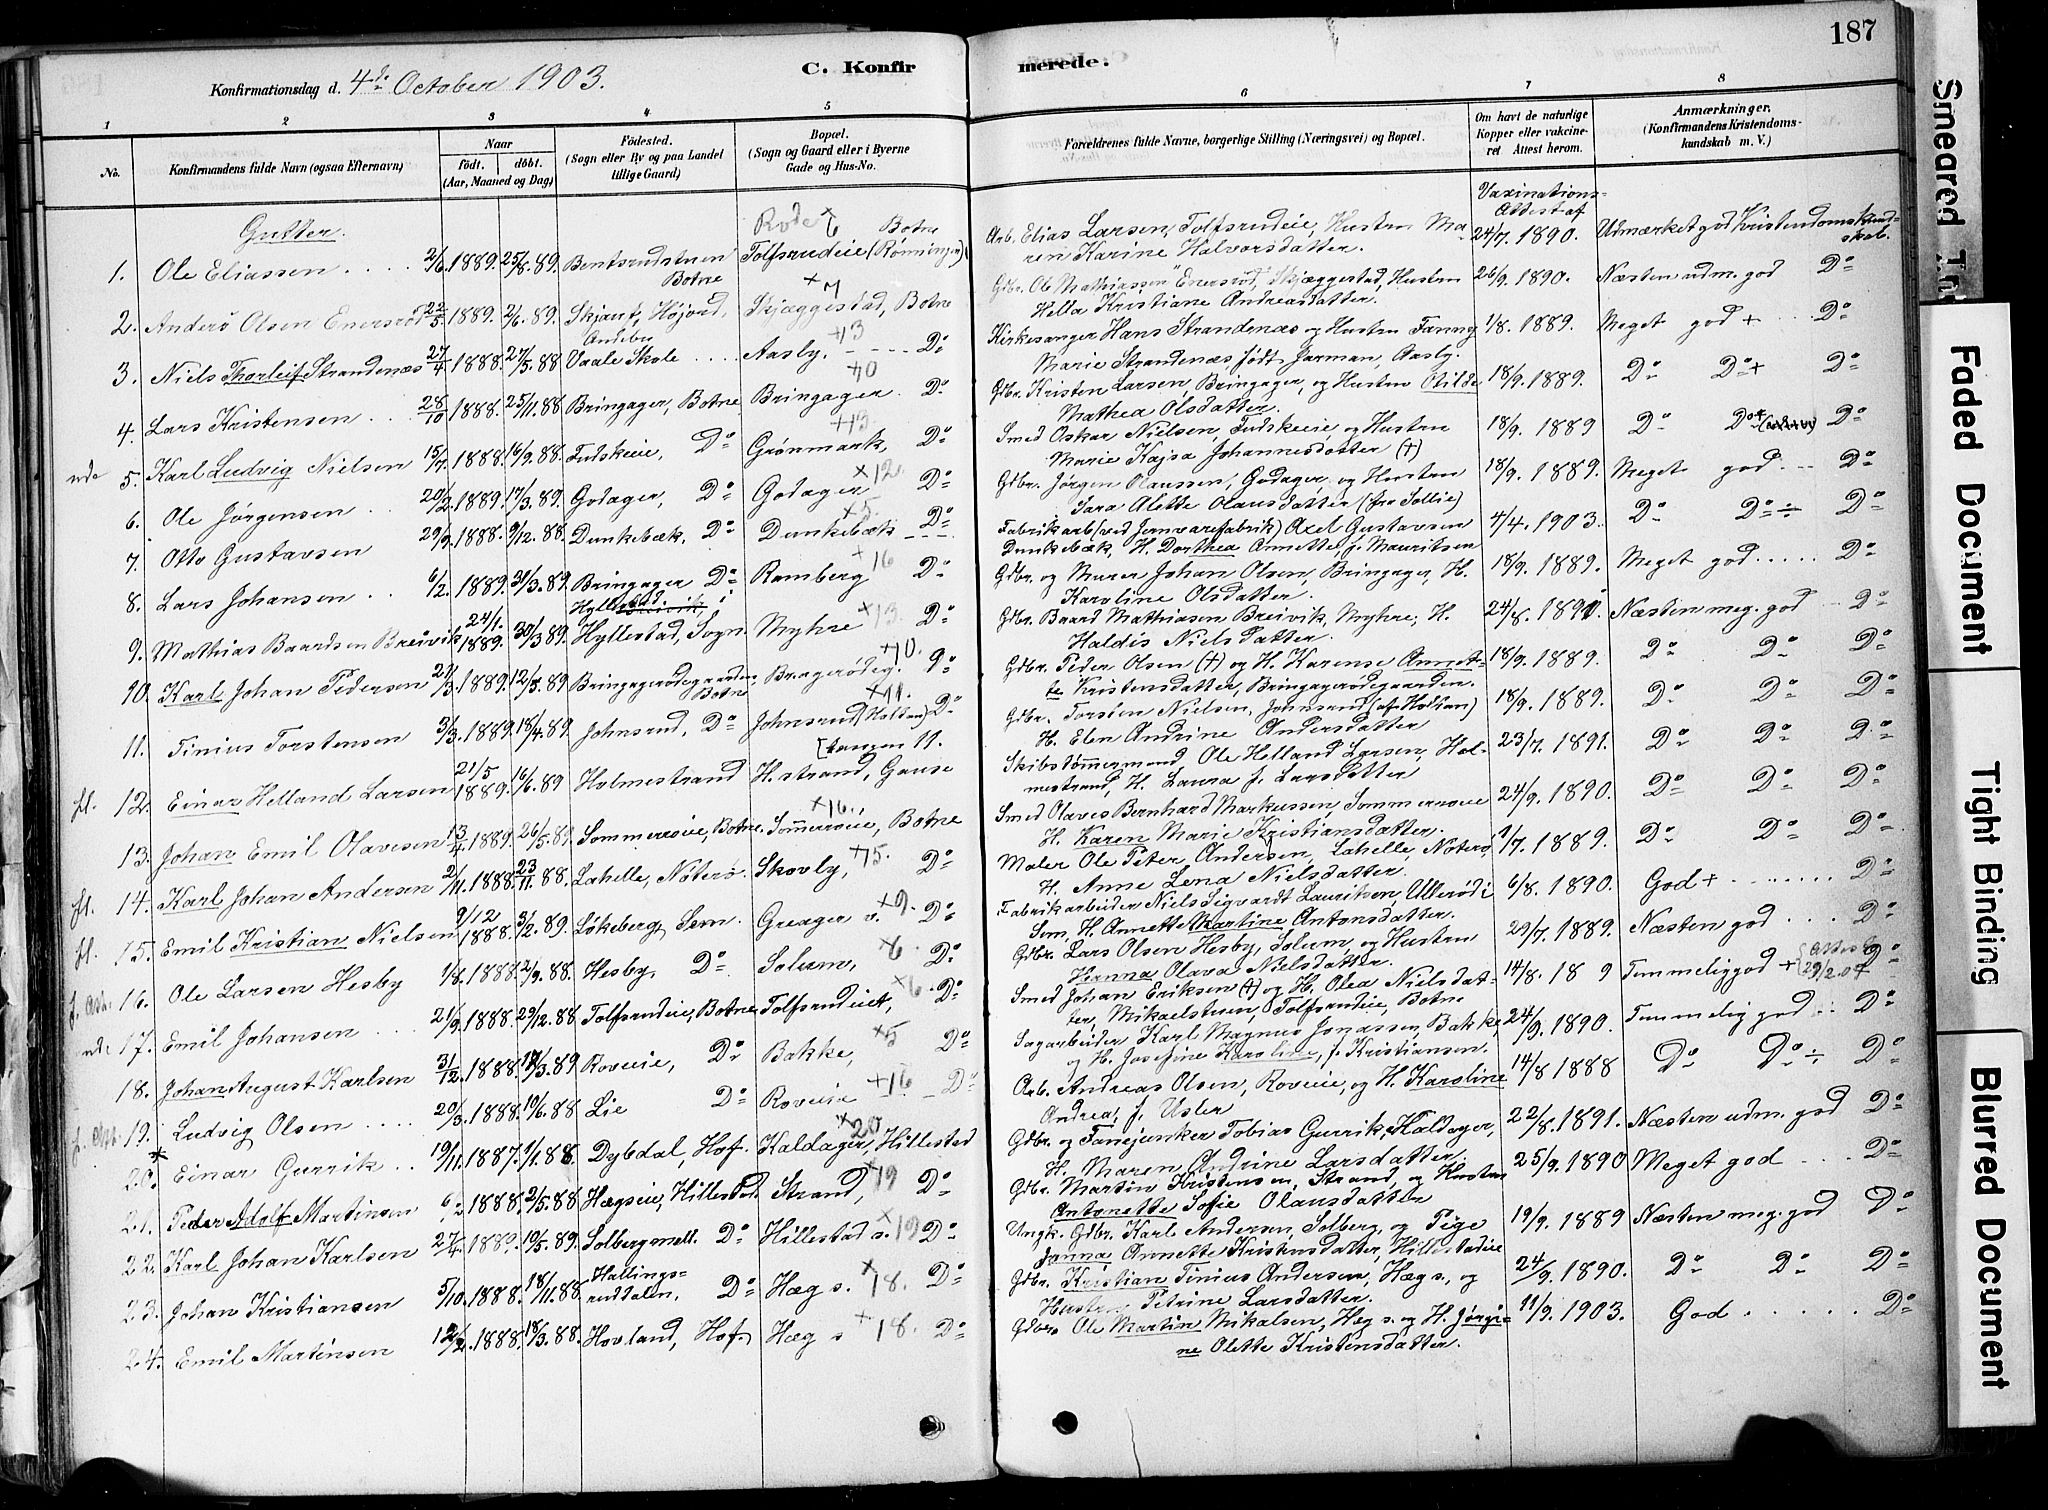 187
Konfirmationsdag d. 4de October 1903.
C. Konfirmerede.
1 2 3 4 5 6 7 8
No.
Konfirmandens fulde Navn (ogsaa Efternavn)
Naar
födt. döbt.
(Aar, Maaned og Dag)
Födested.
(Sogn eller By og paa Landet tillige Gaard)
Bopæl.
(Sogn og Gaard eller i Byerne Gade og Hus-No.
Forældrenes fulde Navne, borgerlige Stilling (Næringsvei) og Bopæl.
Om havt de naturlige Kopper eller vakcineret Attest herom.
Anmærkninger.
(Konfirmandens Kristendomskundskab m. V.)
Gutter.
Rode
Vaxinations-Attest af
1. Ole Eliassen 2/6 1889. 25/8 89. Bentsrudstuen Botne Tolfsrudeie (Rønningen) Botne + 6
Arb. Elias Larsen, Tolfsrudeie, Hustru Maren Karine Halvorsdatter. 24/7 1890. Udmærket god Kristendomskundskab.
2. Anders Olsen Enersrød 22/5 1889. 2/6 89. Skjaut, Højord, Andebu Skjæggestad, Botne + 7
Gdbr. Ole Mathiassen "Enersrød", Skjæggestad, Hustru Hella Kristiane Andreasdatter. 26/9 1890. Næsten udm. god Do
3. Niels Thorleif Strandenæs 27/4 1888. 27/5 88 Vaale Skole Aasby. Do +3
Kirkesanger Hans Strandenæs og Hustru Fanny Marie Strandenæs, født Jarman, Aasby. 1/8 1889. Meget god + Do
4. Lars Kristensen 28/10 1888. 25/11 88 Bringager, Botne Bringager. Do +0
Gdbr. Kristen Larsen, Bringager, og Hustru Otilde Mathea Olsdatter. 18/9 1889. Do Do + Do
nde 5. Karl Ludvig Nielsen 15/7 1888. 16/9 88. Fudskeie, Do Grønmark, Do +13
Smed Oskar Nielsen, Fudskeie og Hustru Marie Kajsa Johannesdatter (†) 18/9 1889 Do Do + Do
6. Ole Jørgensen 20/2 1889. 17/3 89. Godager, Do Godager Do +12
Gdbr. Jørgen Olaussen, Godager, og Hustru Sara Alette Olausdatter (fra Sollie) 18/9 1889. Meget god Do
7. Otto Gustavsen 29/9 1888. 9/12 88. Dunkebæk, Do Dunkebæk Do +5
Fabrikarb. (ved Jernvarefabrik) Axel Gustavsen Dunkebæk, H. Dorthea Annette f. Mauritsen 4/4 1903. Do Do ÷ Do
8. Lars Johansen 6/2 1889. 31/3 89. Bringager Do Ramberg Do +16
Gdbr. og Murer Johan Olsen, Bringager, H. Karoline Olsdatter. 18/9 1889. Meget god Do
9. Mathias Baardsen Breivik 24/1 1889. 30/3 89. Hyllestad, Sogn. Myhre Do +13
Gdbr. Baard Mathiasen Breivik, Myhre, H. Haldis Nielsdatter. 24/8 1890. Næsten meg. god Do
10. Karl Johan Pedersen 21/3 1889. 12/5 89. Bringagerødegaarden Botne Bringagerødeg. Do +10.
Gdbr. Peder Olsen (†) og H. Karense Annette Kristensdatter, Bringagerødegaarden. 18/9 1889. Do Do Do
11. Tinius Torstensen 3/3 1889. 18/4 89 Johnsrud, Do Johnsrud (Holtan) Do +11.
Gdbr. Torsten Nielsen, Johnsrud (af Holtan) H. Elen Andrine Andersdatter 18/9 1889. Do Do Do
fl. 12. Einar Helland Larsen 21/5 1889. 16/6 89 Holmestrand H.strand, Gausetangen 11.
Skibstømmermand Ole Helland Larsen, Holmestrand, H. Laura f. Larsdatter 23/7 1891. Do Do Do
13. Johan Emil Olavesen 13/4 1889. 26/5 89 Sommeroeie, Botne Sommeroeie, Botne +16.
Smed Olaves Bernhard Markussen, Sommeroeie H. Karen Marie Kristiansdatter. 24/9 1890. Do Do Do
fl. 14. Karl Johan Andersen 2/11 1888. 23/11 88. Lahelle, Nøterø. Skovly, Do +15.
Maler Ole Peter Andersen, Lahelle, Nøterø, H. Anne Lena Nielsdatter. 1/7 1889. Do Do Do
fl. 15. Emil Kristian Nielsen 9/12 1888. 3/2 89. Løkeberg, Sem. Greager v. Do +9.
Fabrikarbeider Niels Sigvardt Lauritsen, Ullerød i Sem, H. Annette Martine Antonsdatter. 6/8 1890. God + Do
16. Ole Larsen Hesby 1/8 1888. 2/9 88. Hesby, Do Solum, Do +6.
Gdbr. Lars Olsen Hesby, Solum, og Hustru Hanna Olava Nielsdatter. 29/7 1889. Næsten god Do
nde 17. Emil Johansen 21/9 1888. 29/12 88 Tolfsrudeie, Botne Tolfsrudeie, Do +6.
Smed Johan Eriksen (†) og H. Olea Nielsdatter, Mikaelstuen, Tolfsrudeie, Botne 14/8 18 9 Temmelig god + Attest 29/2 04 Do
18. Johan August Karlsen 31/12 1888. 17/3 89 Roveie, Do Bakke, Do +5
Sagarbeider Karl Magnus Jonassen, Bakke, og H. Josefine Karoline, f. Kristiansen. 24/9 1890. Temmelig god Do
19. Ludvig Olsen 20/3 1888. 10/6 88 Lie Do Roveie Do +16
Arb. Andreas Olsen, Roveie, og H. Karoline Andrea, f. Usler 14/8 1888 Do Do ÷ Do
20. * Einar Gurrik 19/11 1887. 1/1 88 Dybdal, Hof. Kaldager, Hillestad +20
Gdbr. og Fanejunker Tobias Gurrik, Kaldager, H. Maren Andrine Larsdatter. 22/8 1891. Næsten udm. god Do
21. Peder Adolf Martinsen 6/2 1888. 2/5 88 Hægseie, Hillestad Strand, Do +19
Gdbr. Martin Kristensen, Strand, og Hustru Antonette Sofie Olausdatter 25/9 1890 Meget god Do
22. Karl Johan Karlsen 27/4 1889. 10/5 89. Solbergmell. Do Hillestad s. Do +19
Ungk. Gdbr. Karl Andersen, Solberg, og Pige Janna Annette Kristensdatter, Hillestadeie 19/9 1889 Næsten meg. god Do
23. Johan Kristiansen 5/10 1888. 18/11 88. Hallingsruddalen, Do Hæg s. Do +18.
Gdbr. Kristian Tinius Andersen, Hæg s., og Hustru Petrine Larsdatter. 24/9 1890. Do Do Do
24. Emil Martinsen 12/2 1888. 18/3 88. Hovland, Hof. Hæg s Do +18.
Gdbr. Ole Martin Mikalsen, Hæg s. og H. Jørgine Olette Kristensdatter. 11/9 1903. God Do
Smeared
Faded Document
Tight Binding
Blurred Document